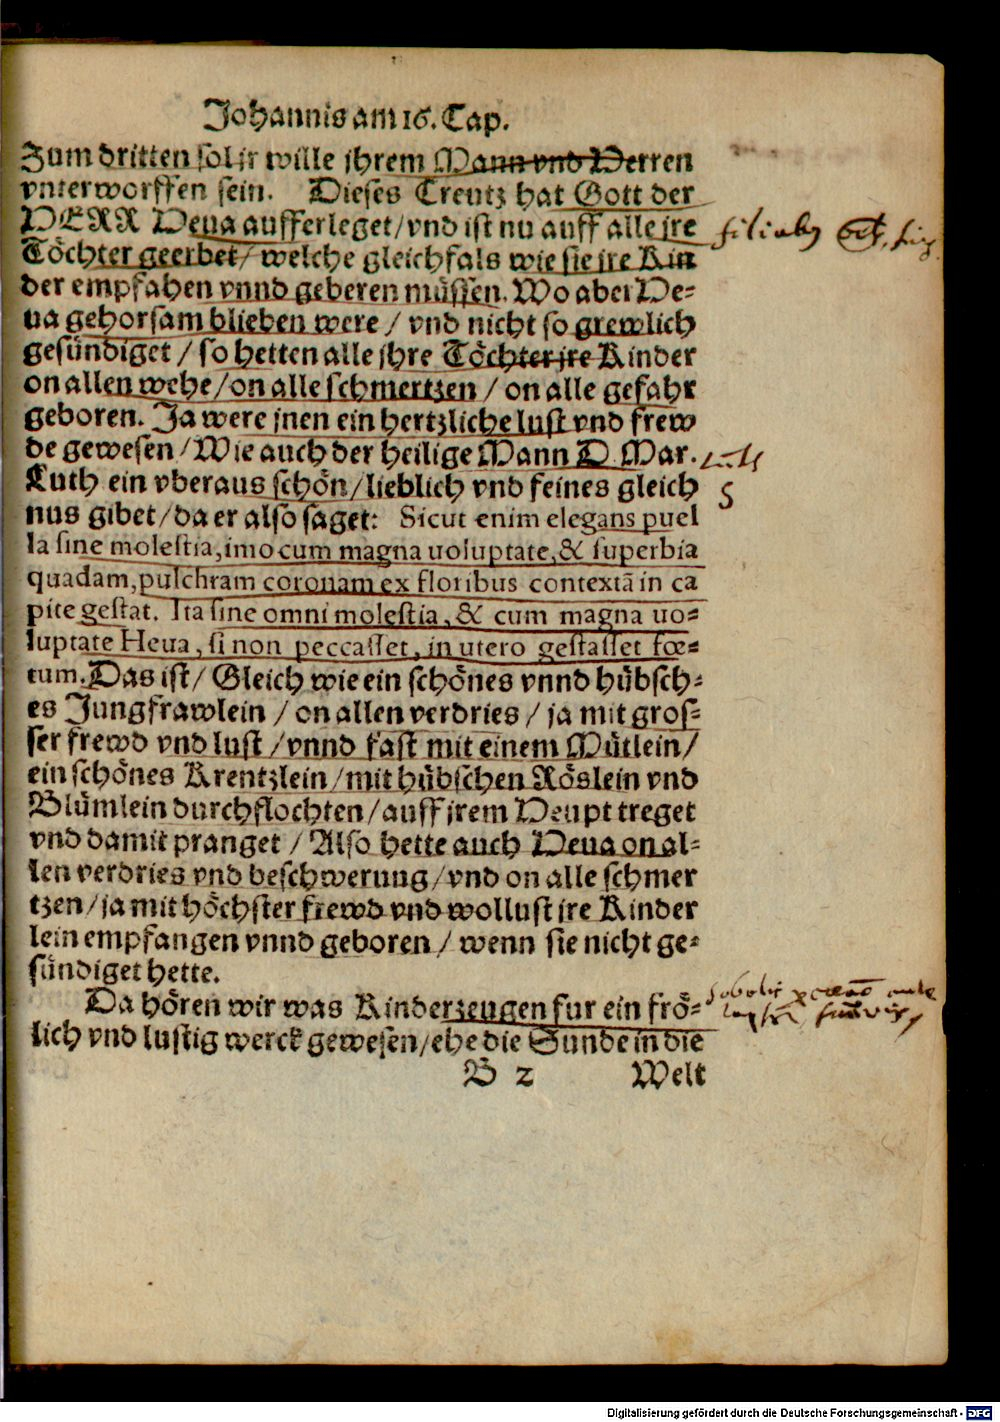 Johannis am 16. Cap.
Zum dritten sol jr wille jhrem Mann vnd Herren
vnterworffen sein. Dieses Creutz hat Gott der
HERR Heua aufferleget/vnd ist nu auff alle jre
Töchter geerbet/ welche gleichfals wie sie jre Kin
der empfahen vnnd geberen müssen. Wo aber He-
ua gehorsam blieben were / vnd nicht so grewlich
gesündiget / so hetten alle jhre Töchter jre Kinder
on allen wehe/on alle schmertzen / on alle gefahr
geboren. Ja were jnen ein hertzliche lust vnd frew
de gewesen/Wie auch der heilige Mann D. Mar.
Luth ein vberaus schön/lieblich vnd feines gleich
nus gibet/da er also saget: Sicut enim elegans puel
la sine molestia, imo cum magna uoluptate, & superbia
quadam, pulchram coronam ex floribus contextã in ca
pite gestat. Ita sine omni molestia, & cum magna uo-
luptate Heua, si non peccasset, in utero gestasset fœ-
tum. Das ist/ Gleich wie ein schönes vnnd hübsch-
es Jungfrawlein / on allen verdries / ja mit gros-
ser frewd vnd lust /vnnd fast mit einem Mütlein/
ein schönes Krentzlein/mit hübschen Röslein vnd
Blümlein durchflochten/auff jrem Heupt treget
vnd damit pranget / Also hette auch Heua on al-
len verdries vnd beschwerung/vnd on alle schmer
tzen/ja mit höchster frewd vnd wollust jre Kinder
lein empfangen vnnd geboren / wenn sie nicht ge-
sündiget hette.
Da hören wir was Kinderzeugen fur ein frö-
lich vnd lustig werck gewesen/ehe die Sunde in die
B 2 Welt
Digitalisierung gefördert durch die Deutsche Forschungsgemeinschaft - DFG